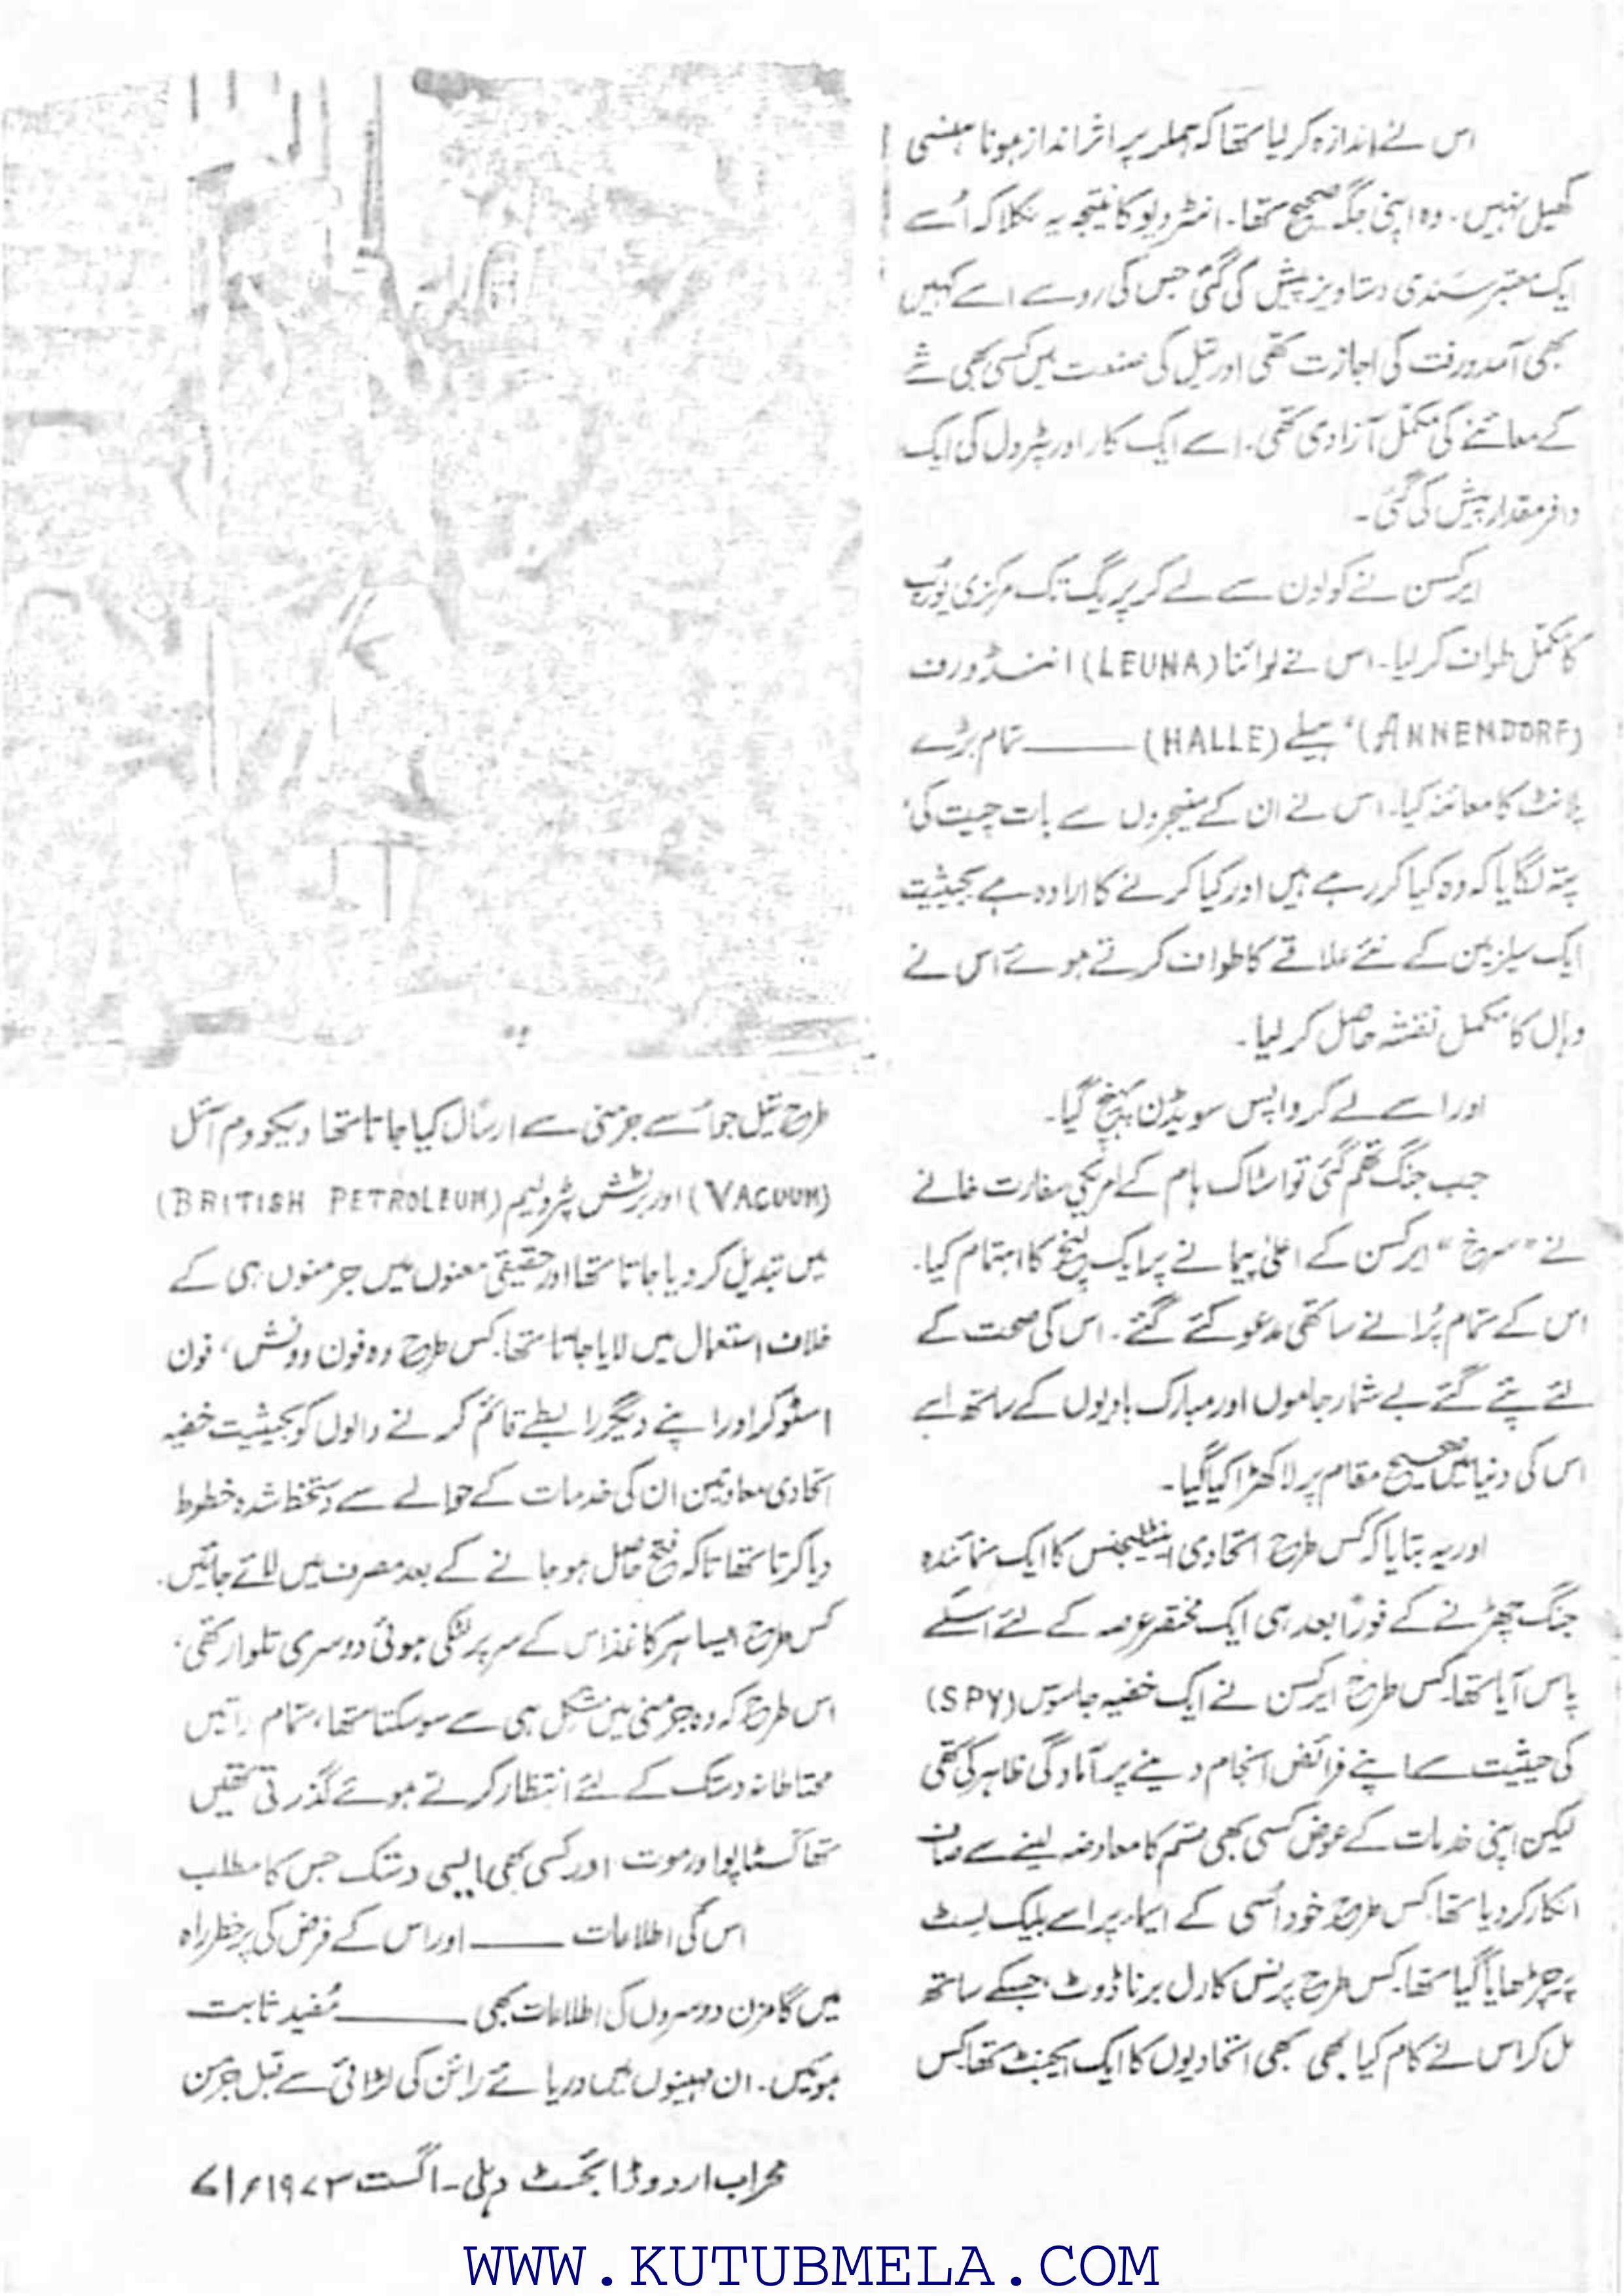 اس نے اندازہ کر لیا تھا کہ ہملر پر اثر انداز ہونا ہنسی
کھیل نہیں۔ وہ اپنی جگہ صحیح تھا۔ انٹرویو کا نتیجہ یہ نکلا کہ اُسے
ایک معتبر سندی دستاویز پیش کی گئی جس کی رو سے اسے کہیں
بھی آمدورفت کی اجازت تھی اور تیل کی صنعت میں کسی بھی شے
کے معائنے کی مکمل آزادی تھی۔ اسے ایک کار اور پٹرول کی ایک
وافر مقدار پیش کی گئی۔
ایرکسن نے کولون سے لے کر پریگ تک مرکزی یورپ
کا مکمل طواف کر لیا۔ اس نے لوائنا (LEUNA) انینڈورف
(ANNENDORF)، ہیلے (HALLE) ـــــــ تمام بڑے
پلانٹ کا معائنہ کیا۔ اس نے ان کے منیجروں سے بات چیت کی،
پتہ لگایا کہ وہ کیا کر رہے ہیں اور کیا کرنے کا ارادہ ہے بحیثیت
ایک سیلزمین کے نئے علاقے کا طواف کرتے ہوئے اس نے
وہاں کا مکمل نقشہ حاصل کر لیا۔
اور اسے لے کر واپس سویڈن پہنچ گیا۔
جب جنگ تھم گئی تو اسٹاک ہام کے امریکی سفارت خانے
نے "سرخ" ایرکسن کے اعلیٰ پیمانے پر ایک لنچ کا اہتمام کیا۔
اس کے تمام پُرانے ساتھی مدعو کئے گئے۔ اس کی صحت کے
لئے پئے گئے بے شمار جاموں اور مبارک بادیوں کے ساتھ اسے
اس کی دنیا میں صحیح مقام پر لا کھڑا کیا گیا۔
اور یہ بتایا کہ کس طرح اتحادی انٹیلیجنس کا ایک نمائندہ
جنگ چھڑنے کے فوراً بعد ہی ایک مختصر عرصہ کے لئے اسکے
پاس آیا تھا۔ کس طرح ایرکسن نے ایک خفیہ جاسوس (SPY)
کی حیثیت سے اپنے فرائض انجام دینے پر آمادگی ظاہر کی تھی
لیکن اپنی خدمات کے عوض کسی بھی قسم کا معاوضہ لینے سے صاف
انکار کر دیا تھا۔ کس طرح خود اُسی کے ایماء پر اسے بلیک لسٹ
پر چڑھایا گیا تھا۔ کس طرح پرنس کارل برناڈوٹ، جسکے ساتھ
مل کر اس نے کام کیا بھی کبھی اتحادیوں کا ایک ایجنٹ تھا۔ کس
طرح تیل جو اُسے جرمنی سے ارسال کیا جاتا تھا ویکووم آئل
(VACUUM) اور برٹش پٹرولیم (BRITISH PETROLEUM)
میں تبدیل کر دیا جاتا تھا اور حقیقی معنوں میں جرمنوں ہی کے
خلاف استعمال میں لایا جاتا تھا۔ کس طرح وہ فون وونش، فون
اسٹوکر اور اپنے دیگر رابطے قائم کرنے والوں کو بحیثیت خفیہ
اتحادی معاونین ان کی خدمات کے حوالے سے دستخط شدہ خطوط
دیا کرتا تھا تاکہ فتح حاصل ہو جانے کے بعد مصرف میں لائے جائیں۔
کس طرح ایسا ہر کاغذ اس کے سر پر لٹکی ہوئی دوسری تلوار تھی،
اس طرح کہ وہ جرمنی میں مشکل ہی سے سو سکتا تھا، تمام راتیں
محتاطانہ دستک کے لئے انتظار کرتے ہوئے گذرتی تھیں
تھا گسٹاپو اور موت اور کسی بھی ایسی دستک جس کا مطلب
اس کی اطلاعات ـــــــ اور اس کے فرض کی پرخطر راہ
میں گامزن دوسروں کی اطلاعات بھی ـــــــ مُفید ثابت
ہوئیں۔ ان مہینوں میں دریائے رائن کی لڑائی سے قبل جرمن
محراب اردو ڈائجسٹ دہلی۔ اگست ۱۹۷۳ء/۷۱
WWW.KUTUBMELA.COM